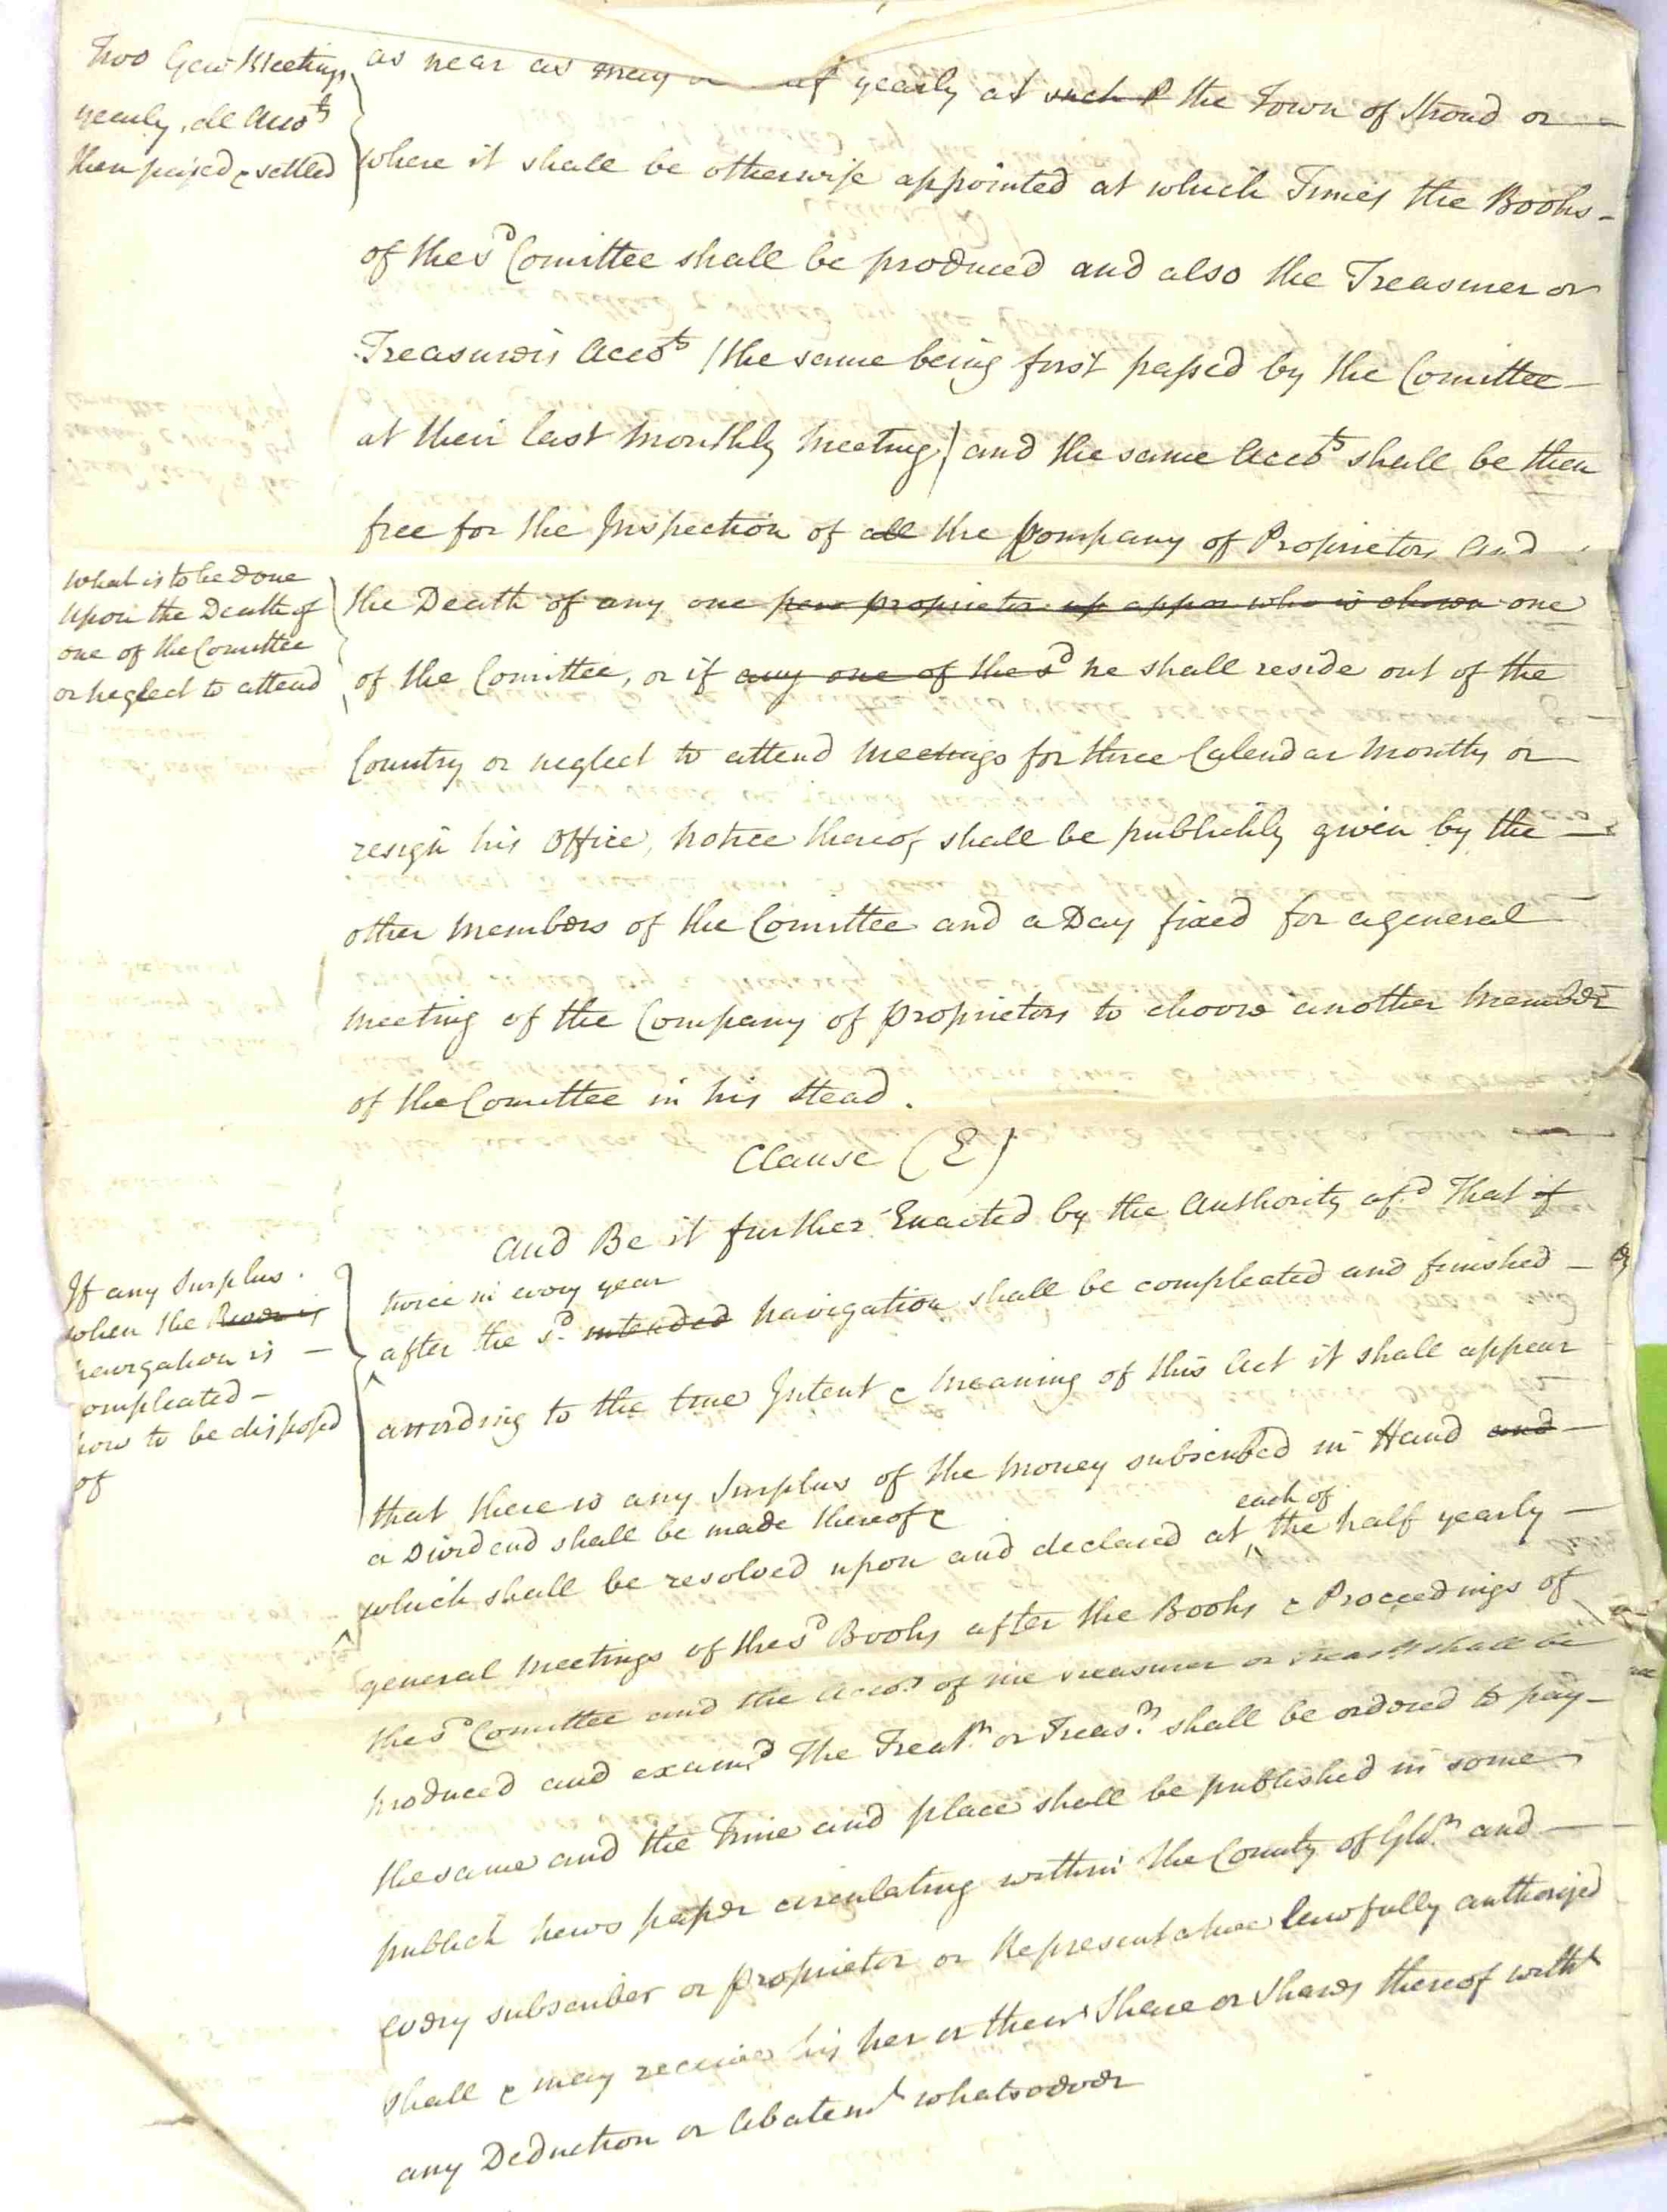 Two Gen.l Meetings
yearly, all Acco.ts
then passed & settled
as near as may yearly at such P the Town of Stroud or
where it shall be otherwise appointed at which Times the Books
of the s.d Comittee shall be produced and also the Treasurer or
Treasurers Acco.ts (the same being first passed by the Comittee
at their last Monthly Meeting) and the same Acco.ts shall be then
free for the Inspection of all the Company of Proprietors And
What is to be done
upon the Death of
one of the Comittee
or neglect to attend
the Death of any one pers proprietor up appor who is chosen one
of the Comittee, or if any one of the s.d he shall reside out of the
Country or neglect to attend Meetings for three Calendar Months or
resign his Office, Notice thereof shall be publickly given by the
other Members of the Comittee and a Day fixed for a general
Meeting of the Company of Proprietors to choose another Member
of the Comittee in his Stead.
Clause (E)
And Be it further Enacted by the Authority af.d That if
If any Surplus
when the River is
Navigation is
ompleated
how to be disposed
of
twice in every year
after the s.d intended Navigation shall be compleated and finished
according to the true Intent & Meaning of this Act it shall appear
that there is any Surplus of the Money subscribed in Hand and
a Dividend shall be made thereof &
each of
which shall be resolved upon and declared at the half yearly
general Meetings of the s.d Books after the Books & Proceedings of
the s.d Comittee and the Acco.ts of the Treasurer or Treas.rs shall be
produced and exam.d The Treas.r or Treas.rs shall be ordered to pay
the same and the Time and place shall be published in some
publick News paper circulating within the County of Glo.r and
every subscriber or Proprietor or Representative lawfully authorized
shall & may receive his her or their Share or Shares thereof with.t
any Deduction or Abatem.t whatsoever